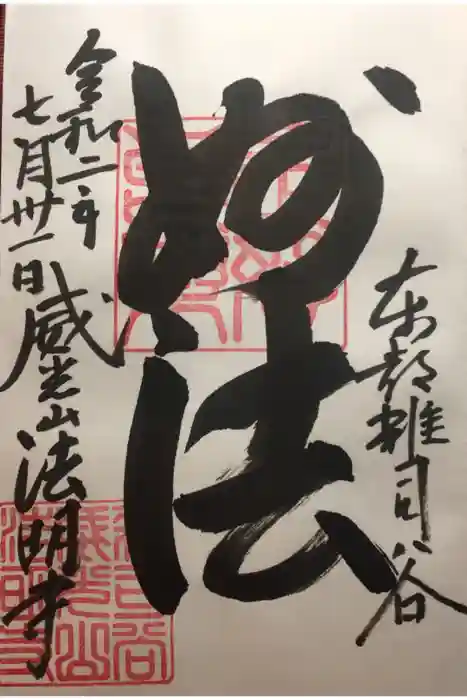 東都雑司ヶ谷
妙法
威光山法明寺
令和二年
七月卅一日